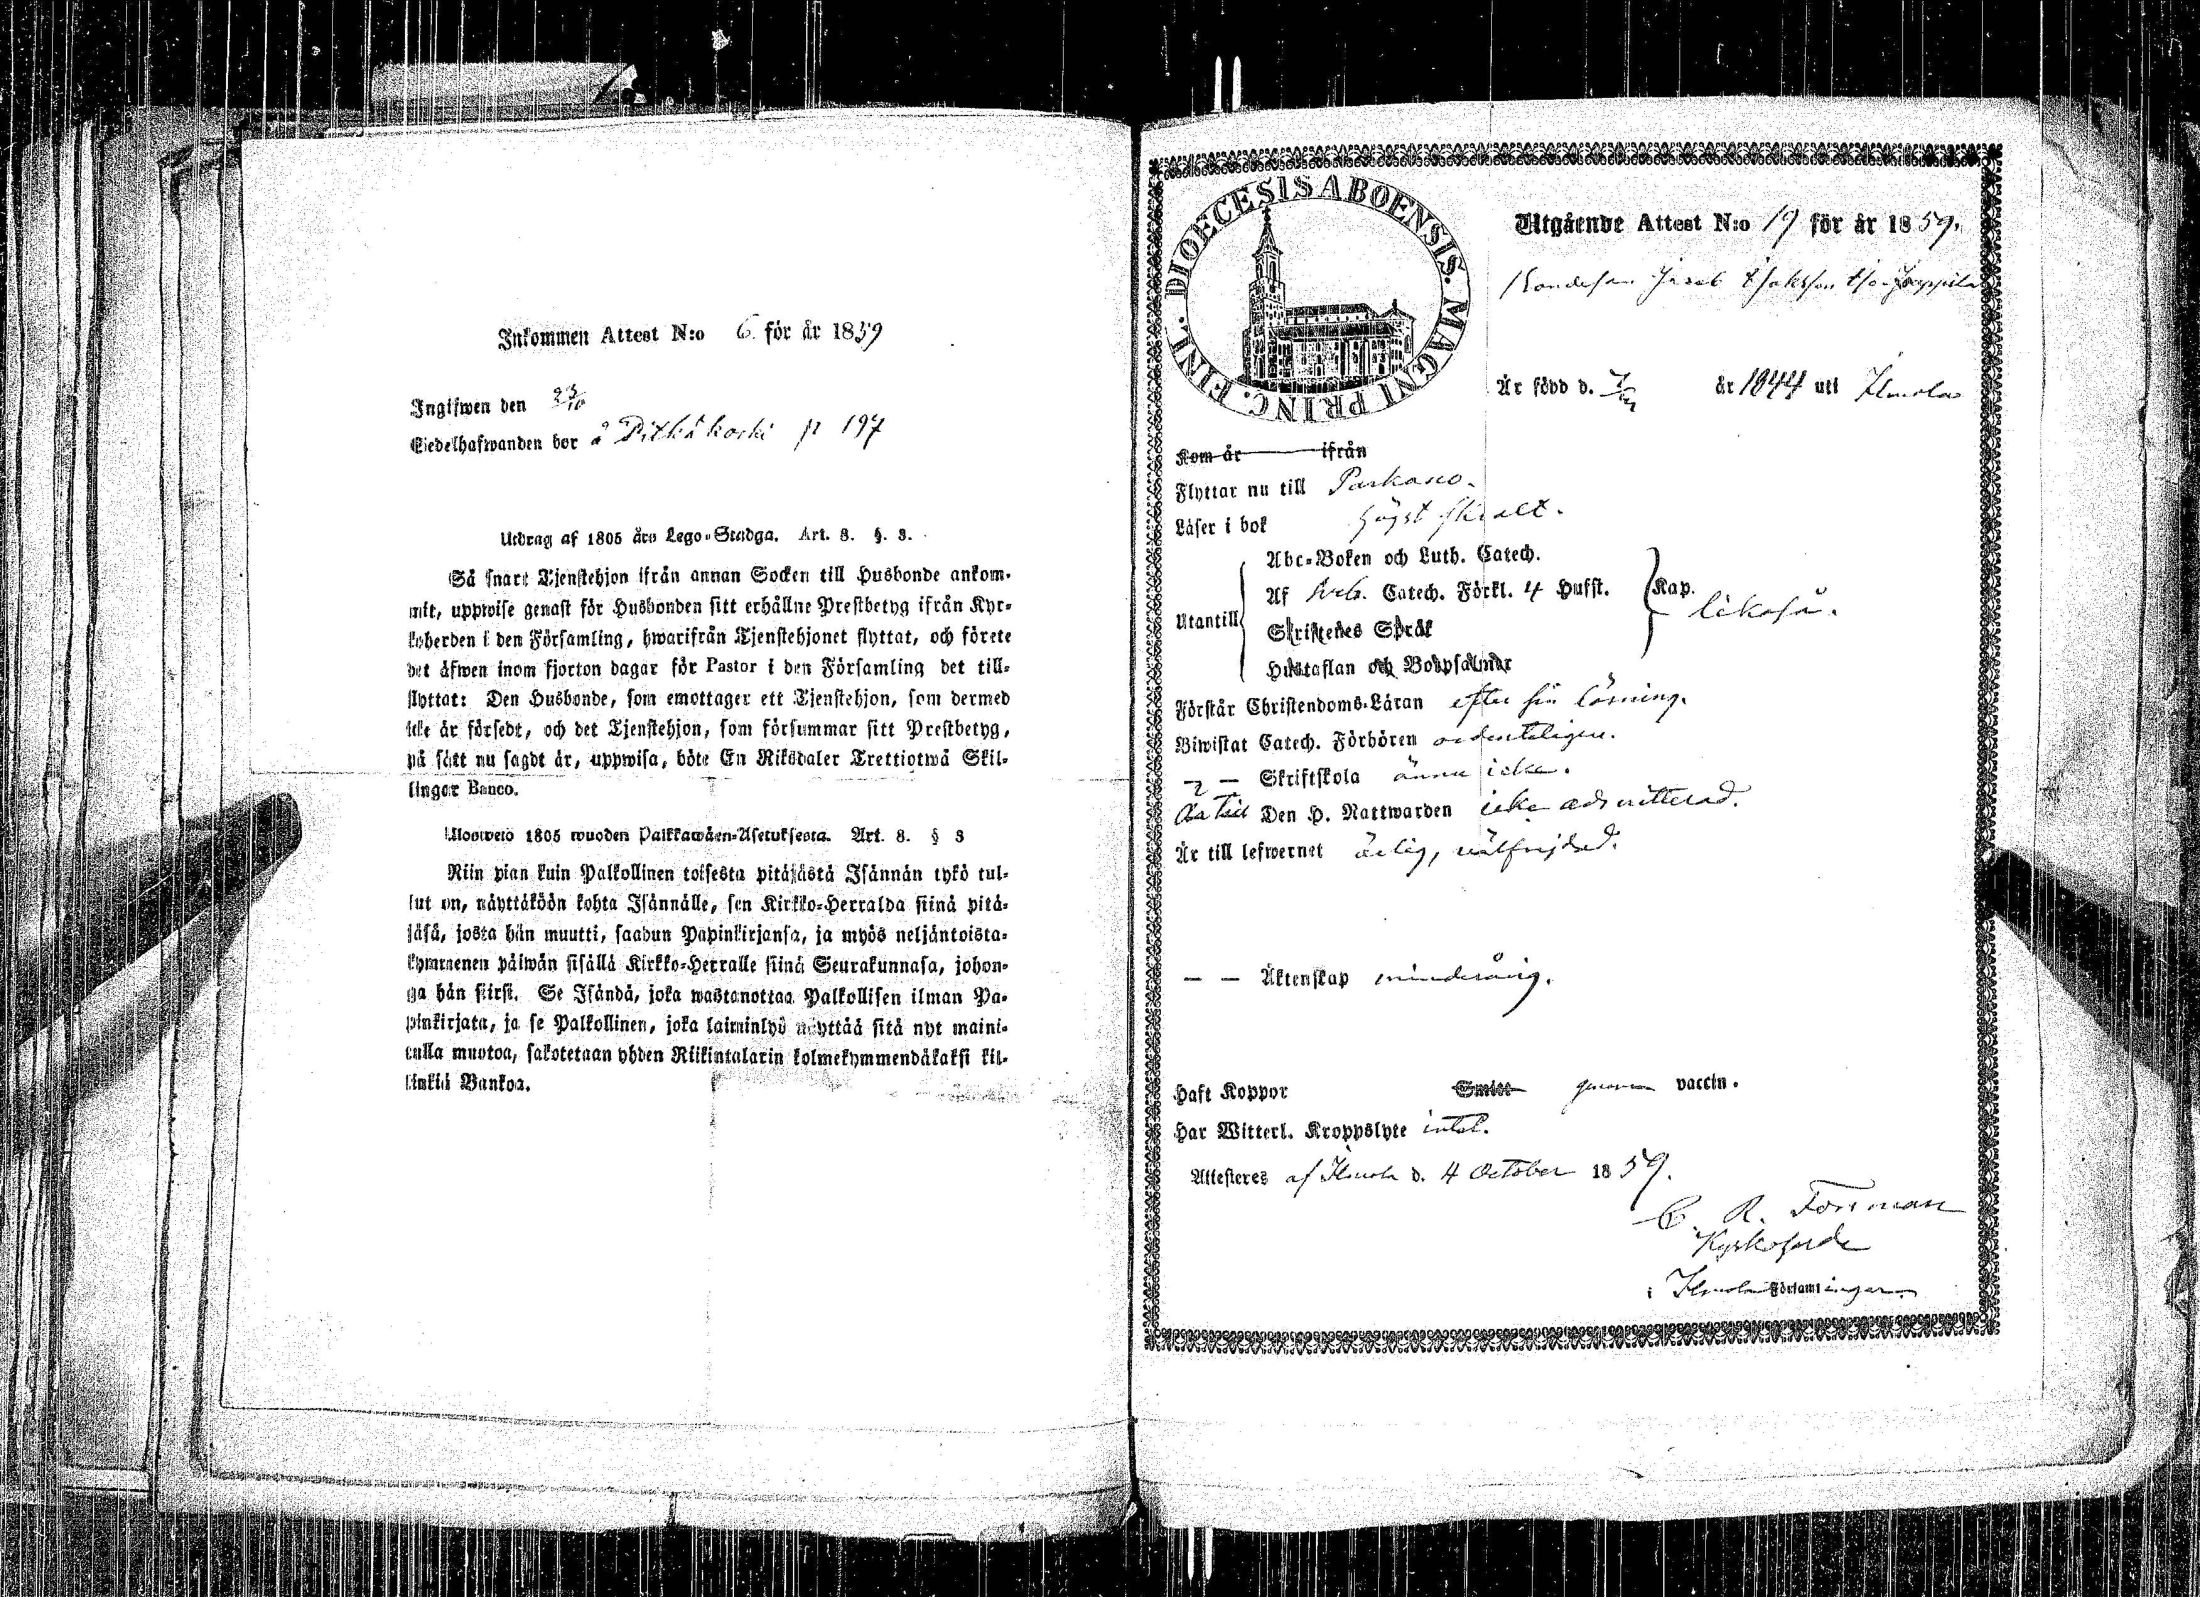 Inkommen Attest N:o 6. för år 1859
Ingifwen den 23/10
Sedelhafwanden bor å Pitkäkoski p 197
Utdrag af 1805 års Lego-Stadga. Art. 8. §. 3.
Så snart Tjenstehjon ifrån annan Socken till Husbonde ankom-
mit, uppwise genast för Husbonden sitt erhållne Prestbetyg ifrån Kyr-
koherden i den Församling, hwarifrån Tjenstehjonet flyttat, och förete
det äfwen inom fjorton dagar för Pastor i den Församling det till-
flyttat: Den Husbonde, som emottager ett Tjenstehjon, som dermed
icke är försedt, och det Tjenstehjon, som försummar sitt Prestbetyg,
på sätt nu sagdt är, uppwisa, böte En Riksdaler Trettiotwå Skil-
lingar Banco.
Ulosweto 1805 wuoden Palkkawäen-Asetuksesta. Art. 8. § 3
Niin pian kuin Palkollinen toisesta pitäjästä Isännän tykö tul-
lut on, näyttäköön kohta Isännälle, sen Kirkko-Herralda siinä pitä-
jäsä, josta hän muutti, saadun Papinkirjansa, ja myös neljäntoista-
kymmenen päiwän sisällä Kirkko-Herralle siinä Seurakunnasa, johon-
ga hän siirst. Se Isändä, joka wastanottaa Palkollisen ilman Pa-
pinkirjata, ja se Palkollinen, joka laiminlyö näyttää sitä nyt maini-
tulla muotoa, sakotetaan yhden Riikintalarin kolmekymmendäkaksi kil-
linkiä Bankoa.
DIOECESIS ABOENSIS. MAGNI PRINC. FINL.
Utgående Attest N:o 19 för år 1859.
Bondeson Jacob
Är född d. år 1844 uti Ilmola
Kom år ifrån
Flyttar nu till Parkano.
Läser i bok högst skralt.
Abc-Boken och Luth. Catech.
Utantill Af Catech. Förkl. 4 Hufst. Kap. likaså.
Skriftenes Språk
Hustaflan och Botpsalmer
Förstår Christendoms-Läran efter sin läsning.
Biwistat Catech. Förhören ordenteligen.
— Skriftskola ännu icke.
Är till Den H. Nattwarden icke admitterad.
Är till lefwernet ärlig, välfrejdad.
— — Äktenskap minderårig.
Haft Koppor Smitt genom vaccin.
Har Witterl. Kroppslyte intet.
Attesteres af Ilmola d. 4 October 1859.
C. R. Forsman
Kyrkoherde
i Ilmola Församlingar.